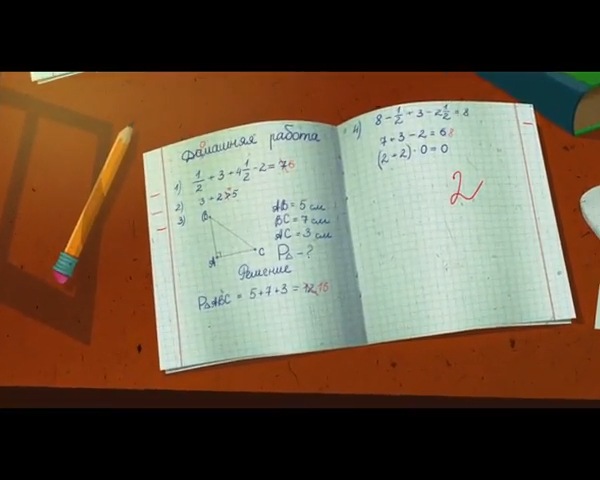 Домашняя работа
1) 1/2 + 3 + 4 1/2 - 2 = 7 6
2) 3 + 2 > 5
3) B
A
C
AB = 5 см
BC = 7 см
AC = 3 см
P△ - ?
Решение
P△ABC = 5 + 7 + 3 = 12 15
4) 8 - 1/2 + 3 - 2 1/2 = 8
7 + 3 - 2 = 6 8
(2 + 2) · 0 = 0
2